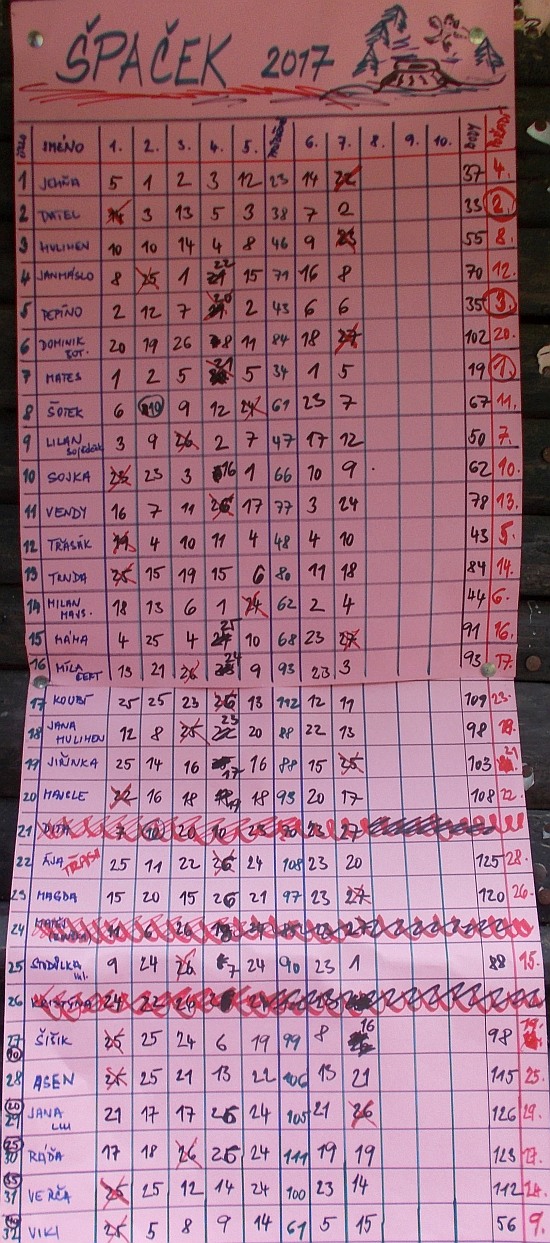 ŠPAČEK 2017
JMÉNO 1. 2. 3. 4. 5. 6. 7. 8. 9. 10. BODY
1 JOHŇA 5 1 2 3 12 23 14 37 4.
2 DATEL 3 13 5 3 38 7 2 33 2.
3 MULIHEN 10 10 14 4 8 46 9 55 8.
4 JANMÁSLO 8 25 1 22 15 71 16 8 70 12.
5 PEPÍNO 2 12 7 20 2 43 6 6 35 3.
6 DOMINIK BOT. 20 19 26 8 11 84 18 27 102 20.
7 MATES 1 2 5 21 5 34 1 5 19 1.
8 ŠOTEK 6 10 9 12 24 61 23 7 67 11.
9 LILAN 3 9 26 2 7 47 17 12 50 7.
10 SOJKA 25 23 3 16 1 66 10 9 62 10.
11 VENDY 16 7 11 26 17 77 3 24 78 13.
12 TŘASÁK 4 10 11 4 48 4 10 43 5.
13 TRNDA 25 15 19 15 6 80 11 18 84 14.
14 MILAN MAVS. 18 13 6 1 24 62 2 4 44 6.
15 MÁMA 4 25 4 25 10 68 23 27 91 16.
16 MÍLA BERT 13 21 26 24 9 93 23 3 93 17.
17 KOUBÍ 25 25 23 26 13 112 12 11 109 23.
18 JANA MULIHEN 12 8 25 23 20 88 22 13 98
19 JIŘINKA 25 14 16 17 16 88 15 25 103 21.
20 MANCLE 22 16 18 19 18 93 20 17 108 22.
21 7 10 20 10 25 23 27
22 ÁJA TRASA 25 11 22 26 24 108 23 20 125 28.
23 MAGDA 15 20 15 26 21 97 23 27 120 26.
24 11 6 26 27
25 9 24 26 7 24 90 23 1 88 15.
26 KRISTÝNA 24 22 26
27 ŠIŠÍK 25 25 24 6 19 99 8 16 98
28 ASEN 25 25 21 13 22 106 13 21 115 25.
29 JANA LUI 21 17 17 26 24 105 21 26 126 29.
30 RÁĎA 17 18 26 26 24 111 19 19 123 27.
31 VERČA 26 25 12 14 24 100 23 14 112 24.
32 VIKI 25 5 8 9 14 61 5 15 56 9.